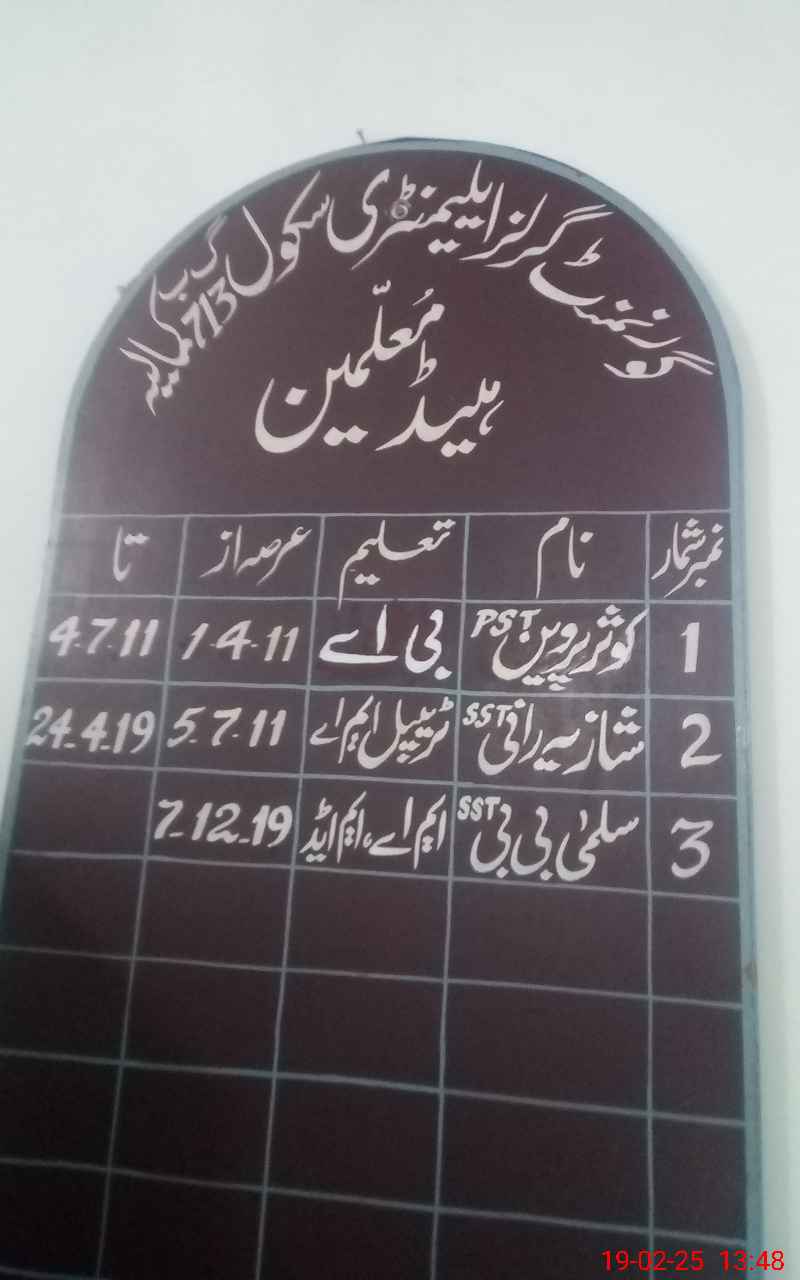 گورنمنٹ گرلز ایلیمنٹری سکول 713 گ ب کمالیہ
ہیڈ مُعلّمین
نمبر شمار نام تعلیم عرصہ از تا
1 کوثر پروین PST بی اے 1-4-11 4.7.11
2 شازیہ رانی SST ٹریپل ایم اے 5-7-11 24-4-19
3 سلمیٰ بی بی SST ایم اے، ایم ایڈ 7-12-19
19-02-25 13:48